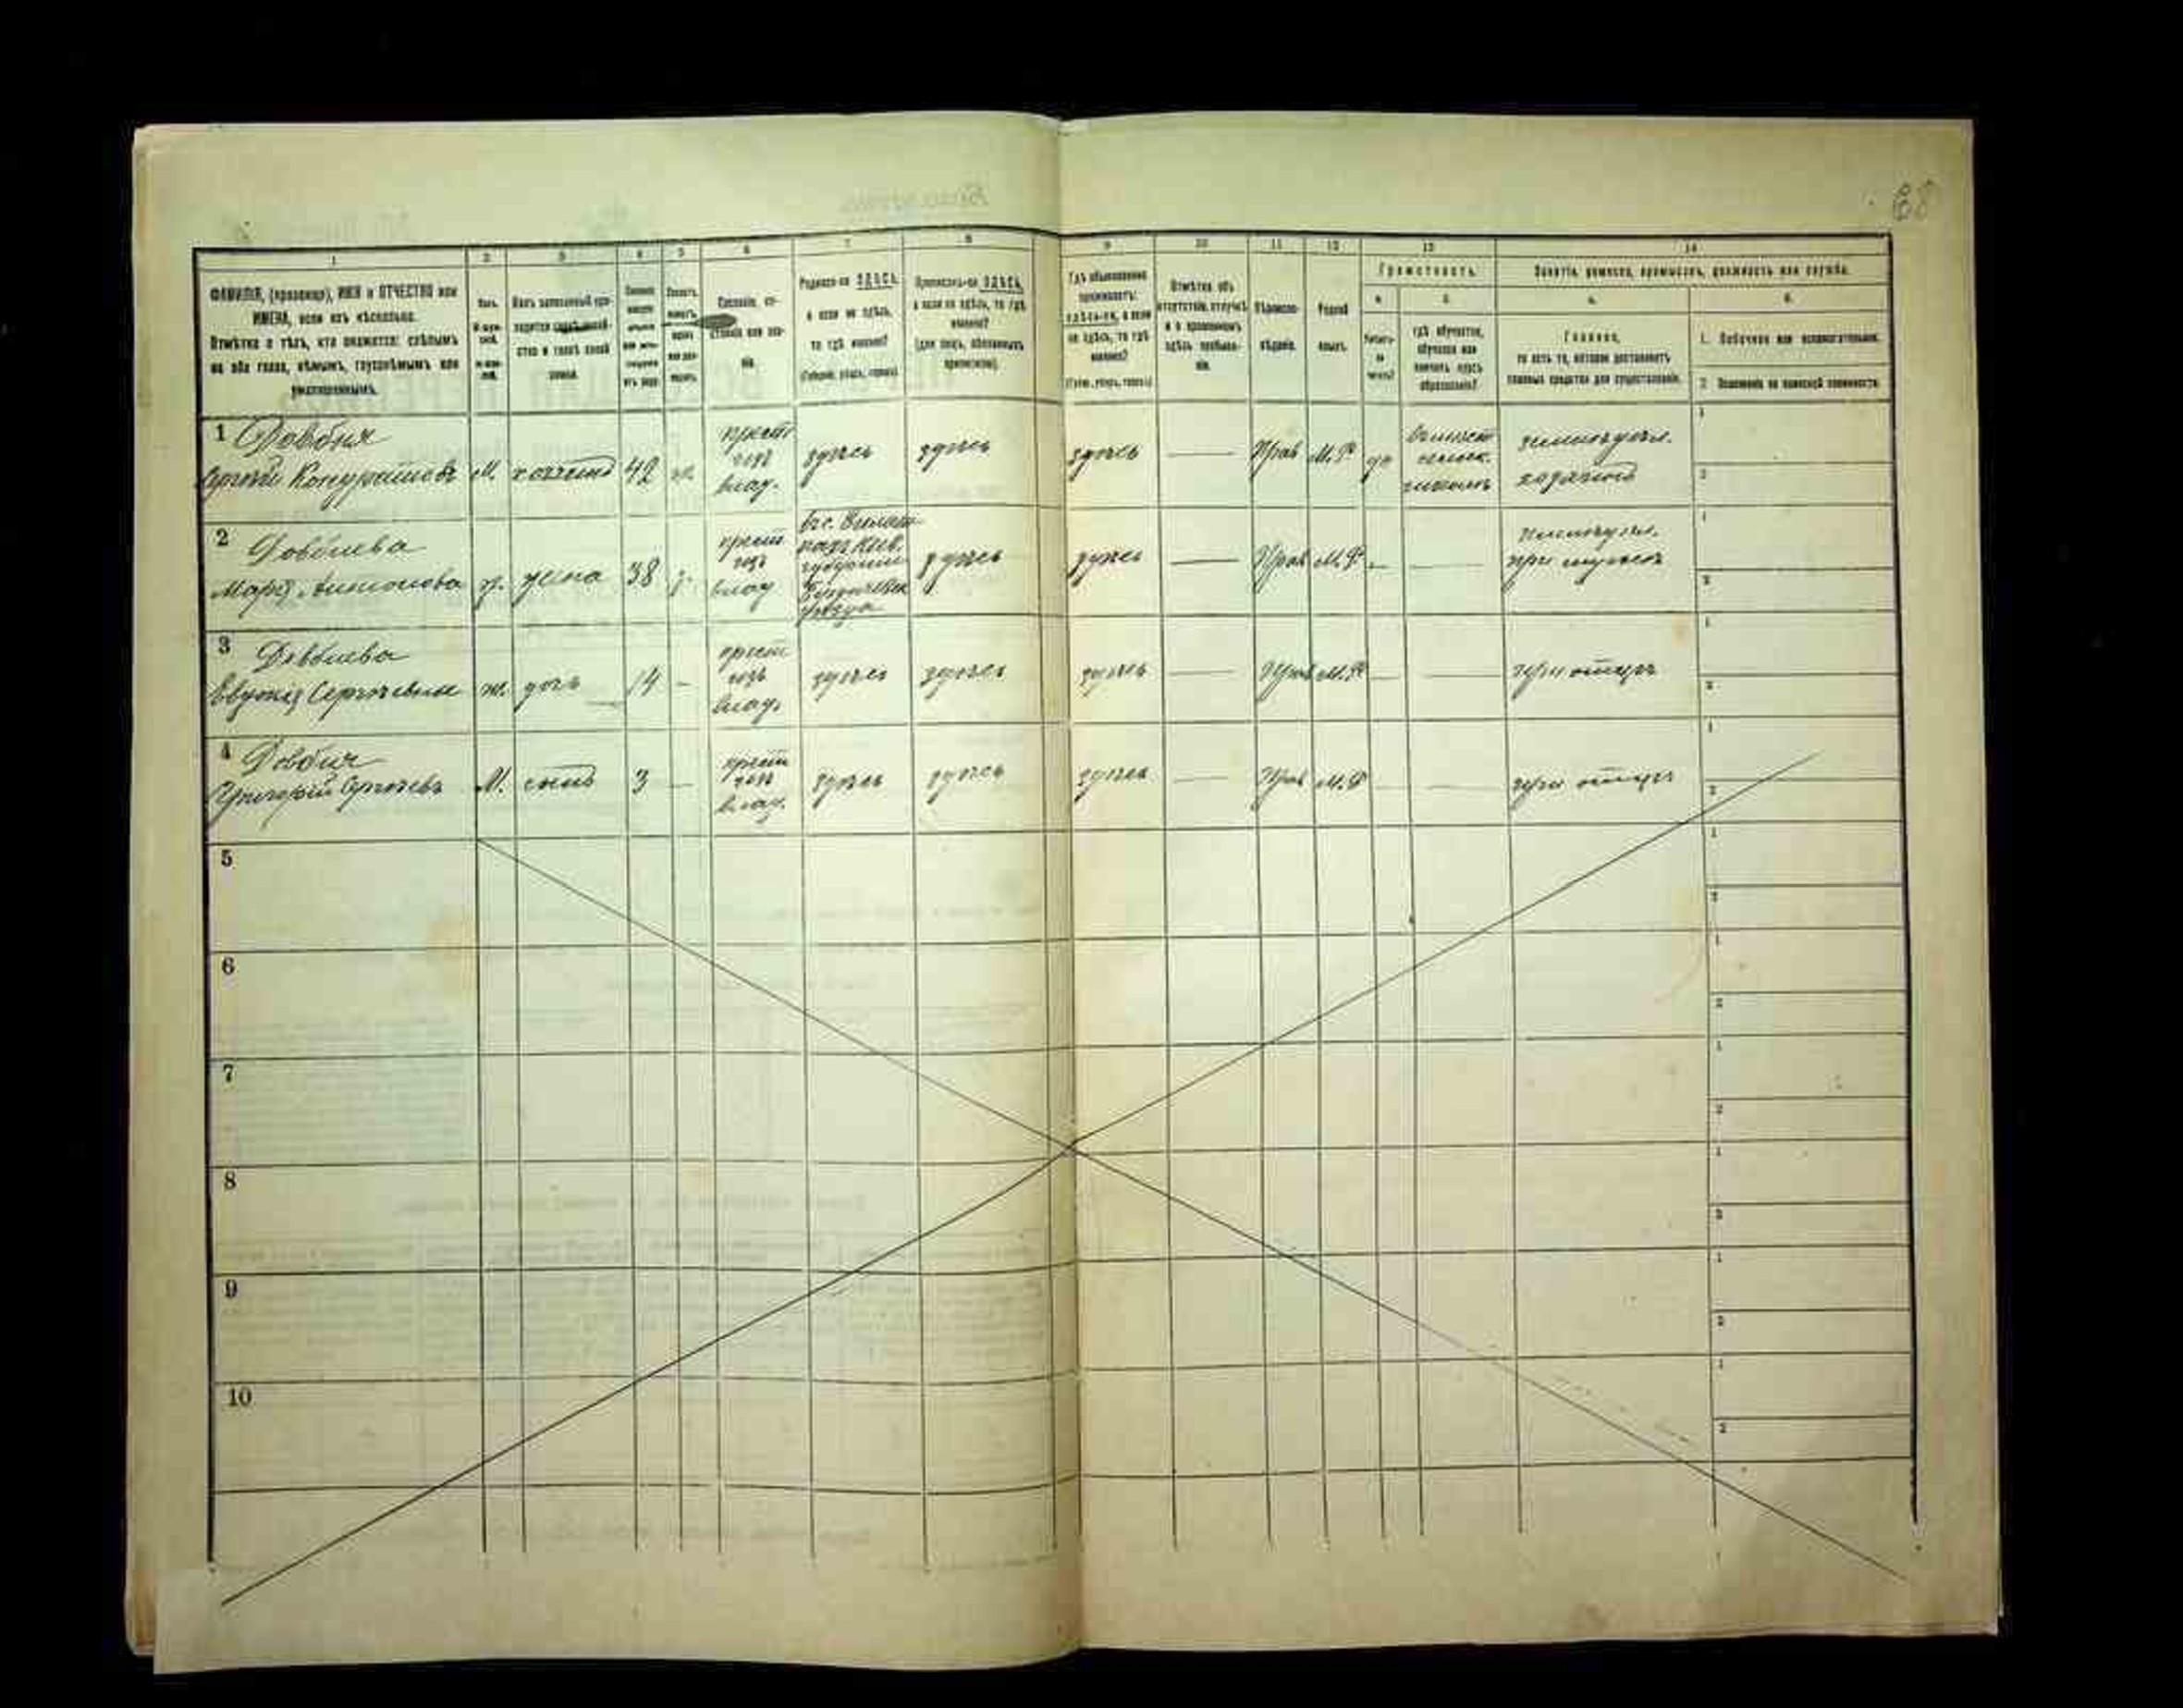 68
1 2 3 4 5 6 7 8 9 10 11 12 13 14
ФАМИЛІЯ, (прозвище), ИМЯ и ОТЧЕСТВО или
ИМЕНА, если ихъ нѣсколько.
Отмѣтка о тѣхъ, кто окажется: слѣпымъ
на оба глаза, нѣмымъ, глухонѣмымъ или
умалишеннымъ.
Полъ.
Какъ записанный при-
ходится главѣ хозяй-
ства и главѣ своей
семьи.
Сословіе, со-
стояніе или зва-
ніе.
Родился-ли ЗДѢСЬ,
а если не здѣсь,
то гдѣ именно?
(Губернія, уѣздъ, городъ)
Приписанъ-ли ЗДѢСЬ,
а если не здѣсь, то гдѣ
именно?
(для лицъ, обязанныхъ
припискою).
Гдѣ обыкновенно
проживаетъ:
здѣсь-ли, а если
не здѣсь, то гдѣ
именно?
(Губ., уѣздъ, городъ)
Отмѣтка объ
отсутствіи, отлучкѣ
и о временномъ
здѣсь пребыва-
ніи.
Вѣроиспо-
вѣданіе.
Родной
языкъ.
Грамотность.
а. б.
Умѣетъ-
ли
читать?
гдѣ обучается,
обучался или
кончилъ курсъ
образованія?
Занятіе, ремесло, промыселъ, должность или служба.
а. б.
Главное,
то есть то, которое доставляетъ
главныя средства для существованія.
1. Побочное или вспомогательное.
2. Положеніе по воинской повинности.
1 Довбня
Сергѣй Кондратіовъ М. хозяинъ 42 ж. крест. соб. влад. здѣсь здѣсь здѣсь — Прав М.Р да земледѣл. хозяинъ
2 Довбнева
Марія Антонова ж. жена 38 з. крест. влад. губерніи уѣзда здѣсь здѣсь — Прав М.Р — — земледѣл. при мужѣ
3 Довбнева
Евдокія Сергѣевна ж. дочь 14 — крест. влад. здѣсь здѣсь здѣсь — Прав М.Р — — при отцѣ
4 Довбня
Григорій Сергѣевъ М. сынъ 3 — крест. влад. здѣсь здѣсь здѣсь — Прав М.Р — — при отцѣ
5
6
7
8
9
10